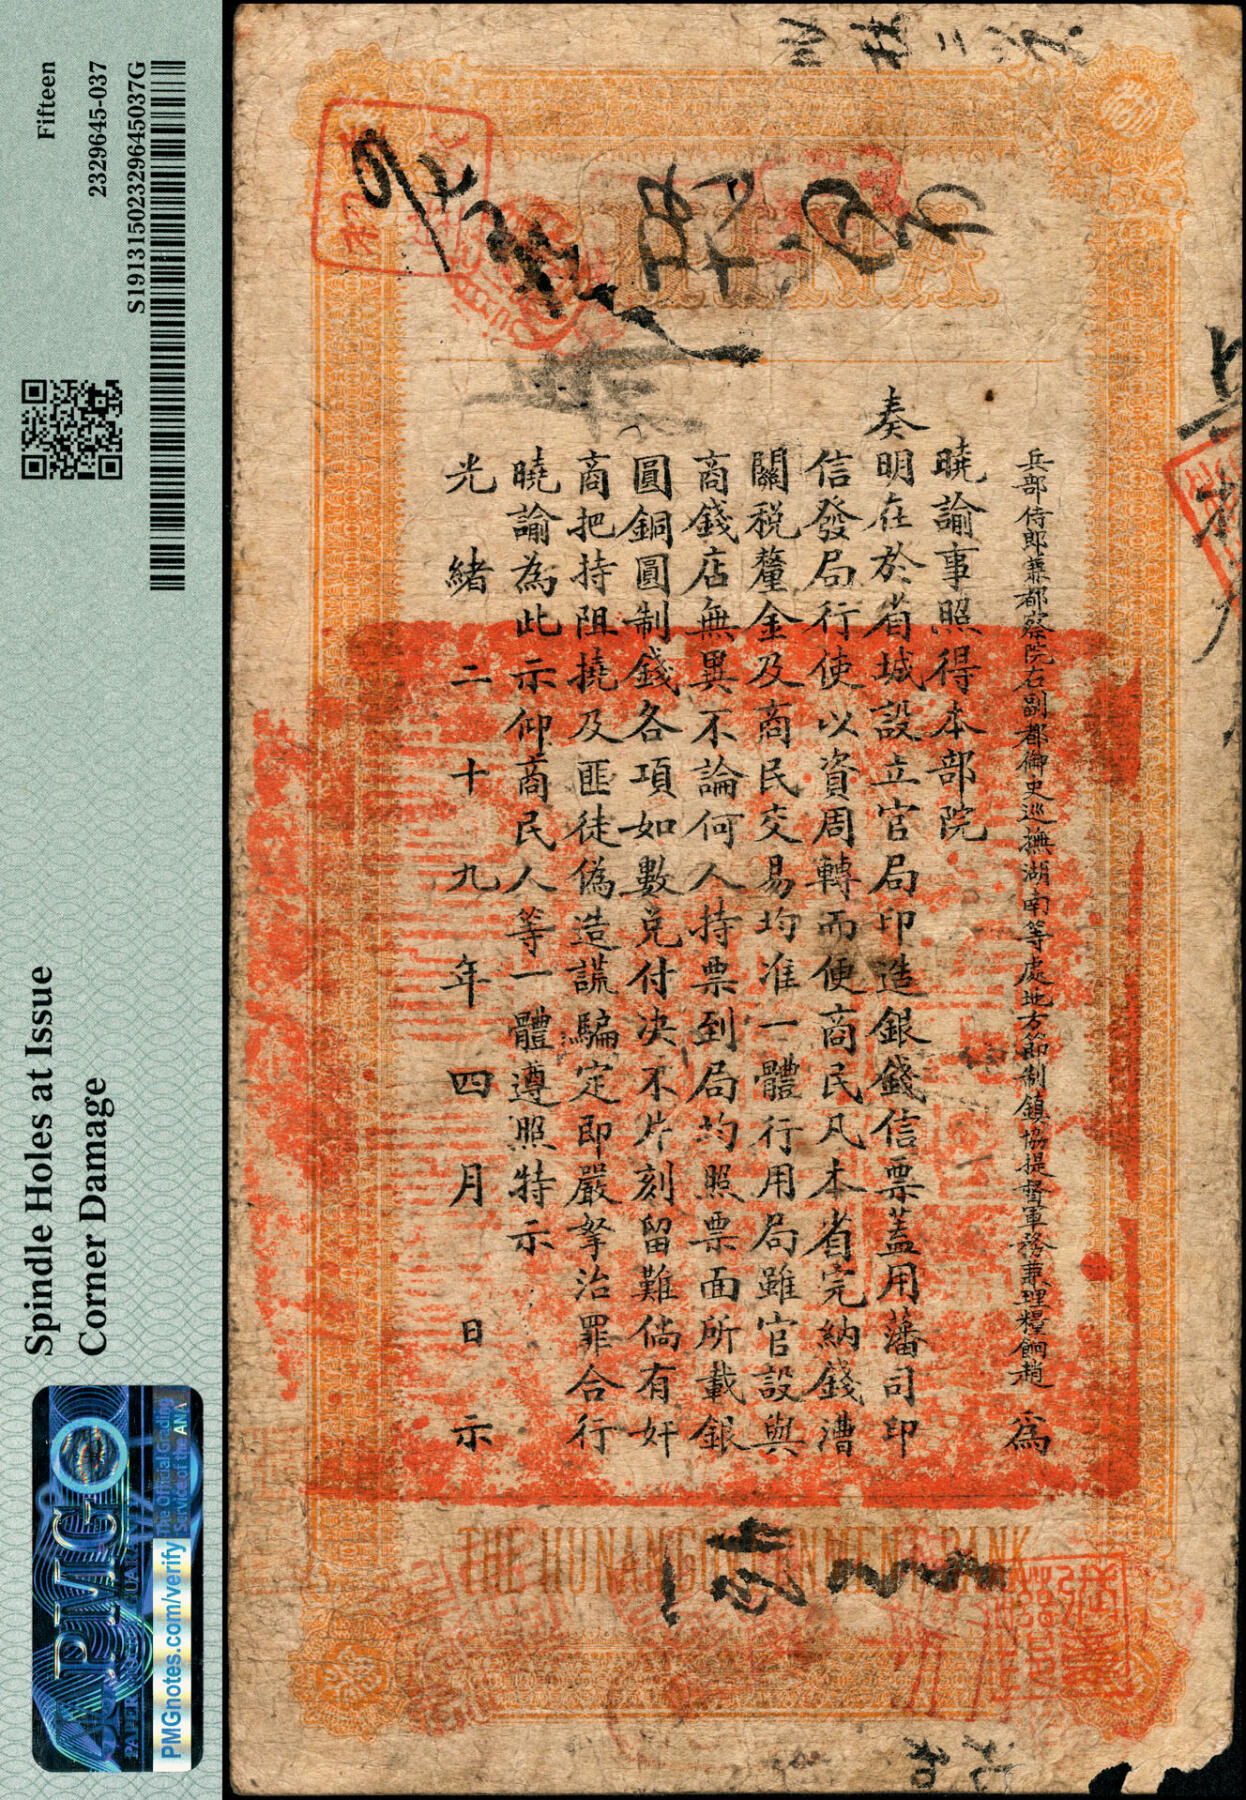 Fifteen
2329645-037
S1913150232964503​7G
Spindle Holes at Issue
Corner Damage
PMG
PAPER
The Official Grading
Service of the ANA
PMGnotes.com/verify
兵部侍郎兼都察院右副都御史巡撫湖南等處地方節制鎮協提督軍務兼理糧餉趙 為
曉諭事照得本部院
奏明在於省城設立官局印造銀錢信票蓋用藩司印
信發局行使以資周轉而便商民凡本省完納錢漕
關税釐金及商民交易均准一體行用局雖官設與
商錢店無異不論何人持票到局均照票面所載銀
圓銅圓制錢各項如數兑付决不片刻留難倘有奸
商把持阻撓及匪徒偽造謊騙定即嚴拏治罪合行
曉諭為此示仰商民人等一體遵照特示
光緒二十九年四月 日示
THE HUNAN GOVERNMENT BANK